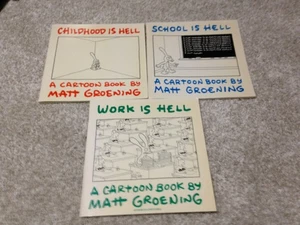 CHILDHOOD IS HELL
A CARTOON BOOK BY
MATT GROENING
SCHOOL IS HELL
A CARTOON BOOK BY
MATT GROENING
WORK IS HELL
A CARTOON BOOK BY
MATT GROENING